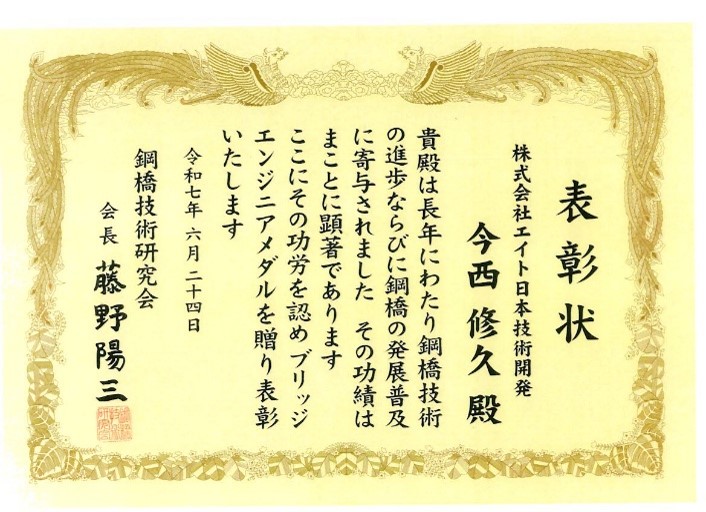 表彰状
株式会社エイト日本技術開発
今西 修久 殿
貴殿は長年にわたり鋼橋技術
の進歩ならびに鋼橋の発展普及
に寄与されました その功績は
まことに顕著であります
ここにその功労を認め ブリッジ
エンジニアメダルを贈り表彰
いたします
令和七年 六月 二十四日
鋼橋技術研究会
会長 藤野陽三